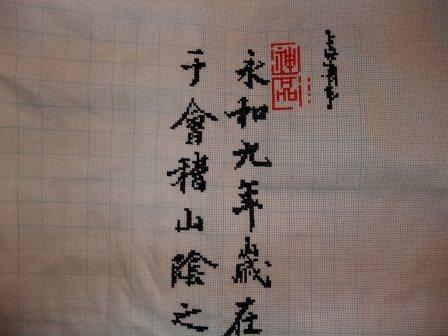 神品
永和九年歲在
于會稽山陰之